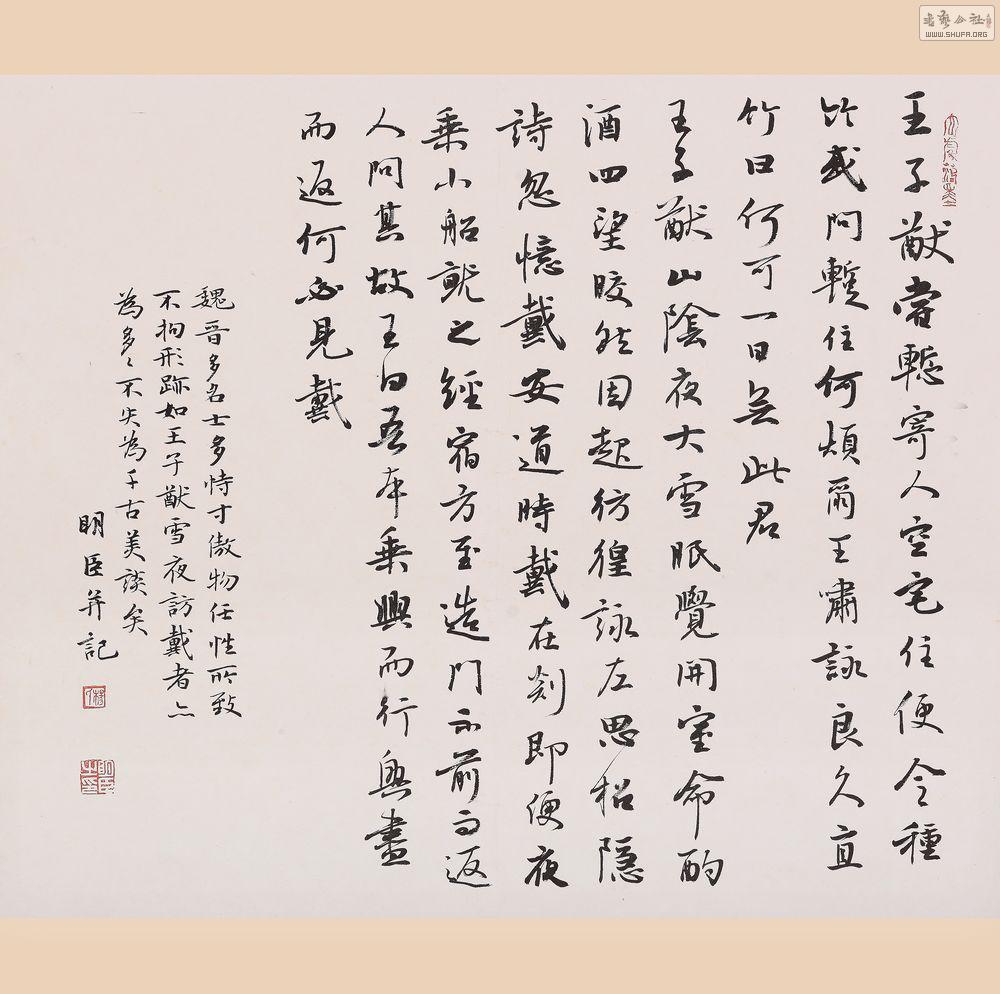 王子猷嘗暫寄人空宅住便令種
竹或問暫住何煩爾王嘯詠良久直
竹曰何可一日無此君
王子猷山陰夜大雪眠覺開室命酌
酒四望皎然因起彷徨詠左思招隱
詩忽憶戴安道時戴在剡即便夜
乘小船就之經宿方至造門不前而返
人問其故王曰吾本乘興而行興盡
而返何必見戴
魏晉多名士多恃才傲物任性所致
不拘形跡如王子猷雪夜訪戴者亦
為多々不失為千古美談矣
明臣并記
書藝公社
WWW.SHUFA.ORG